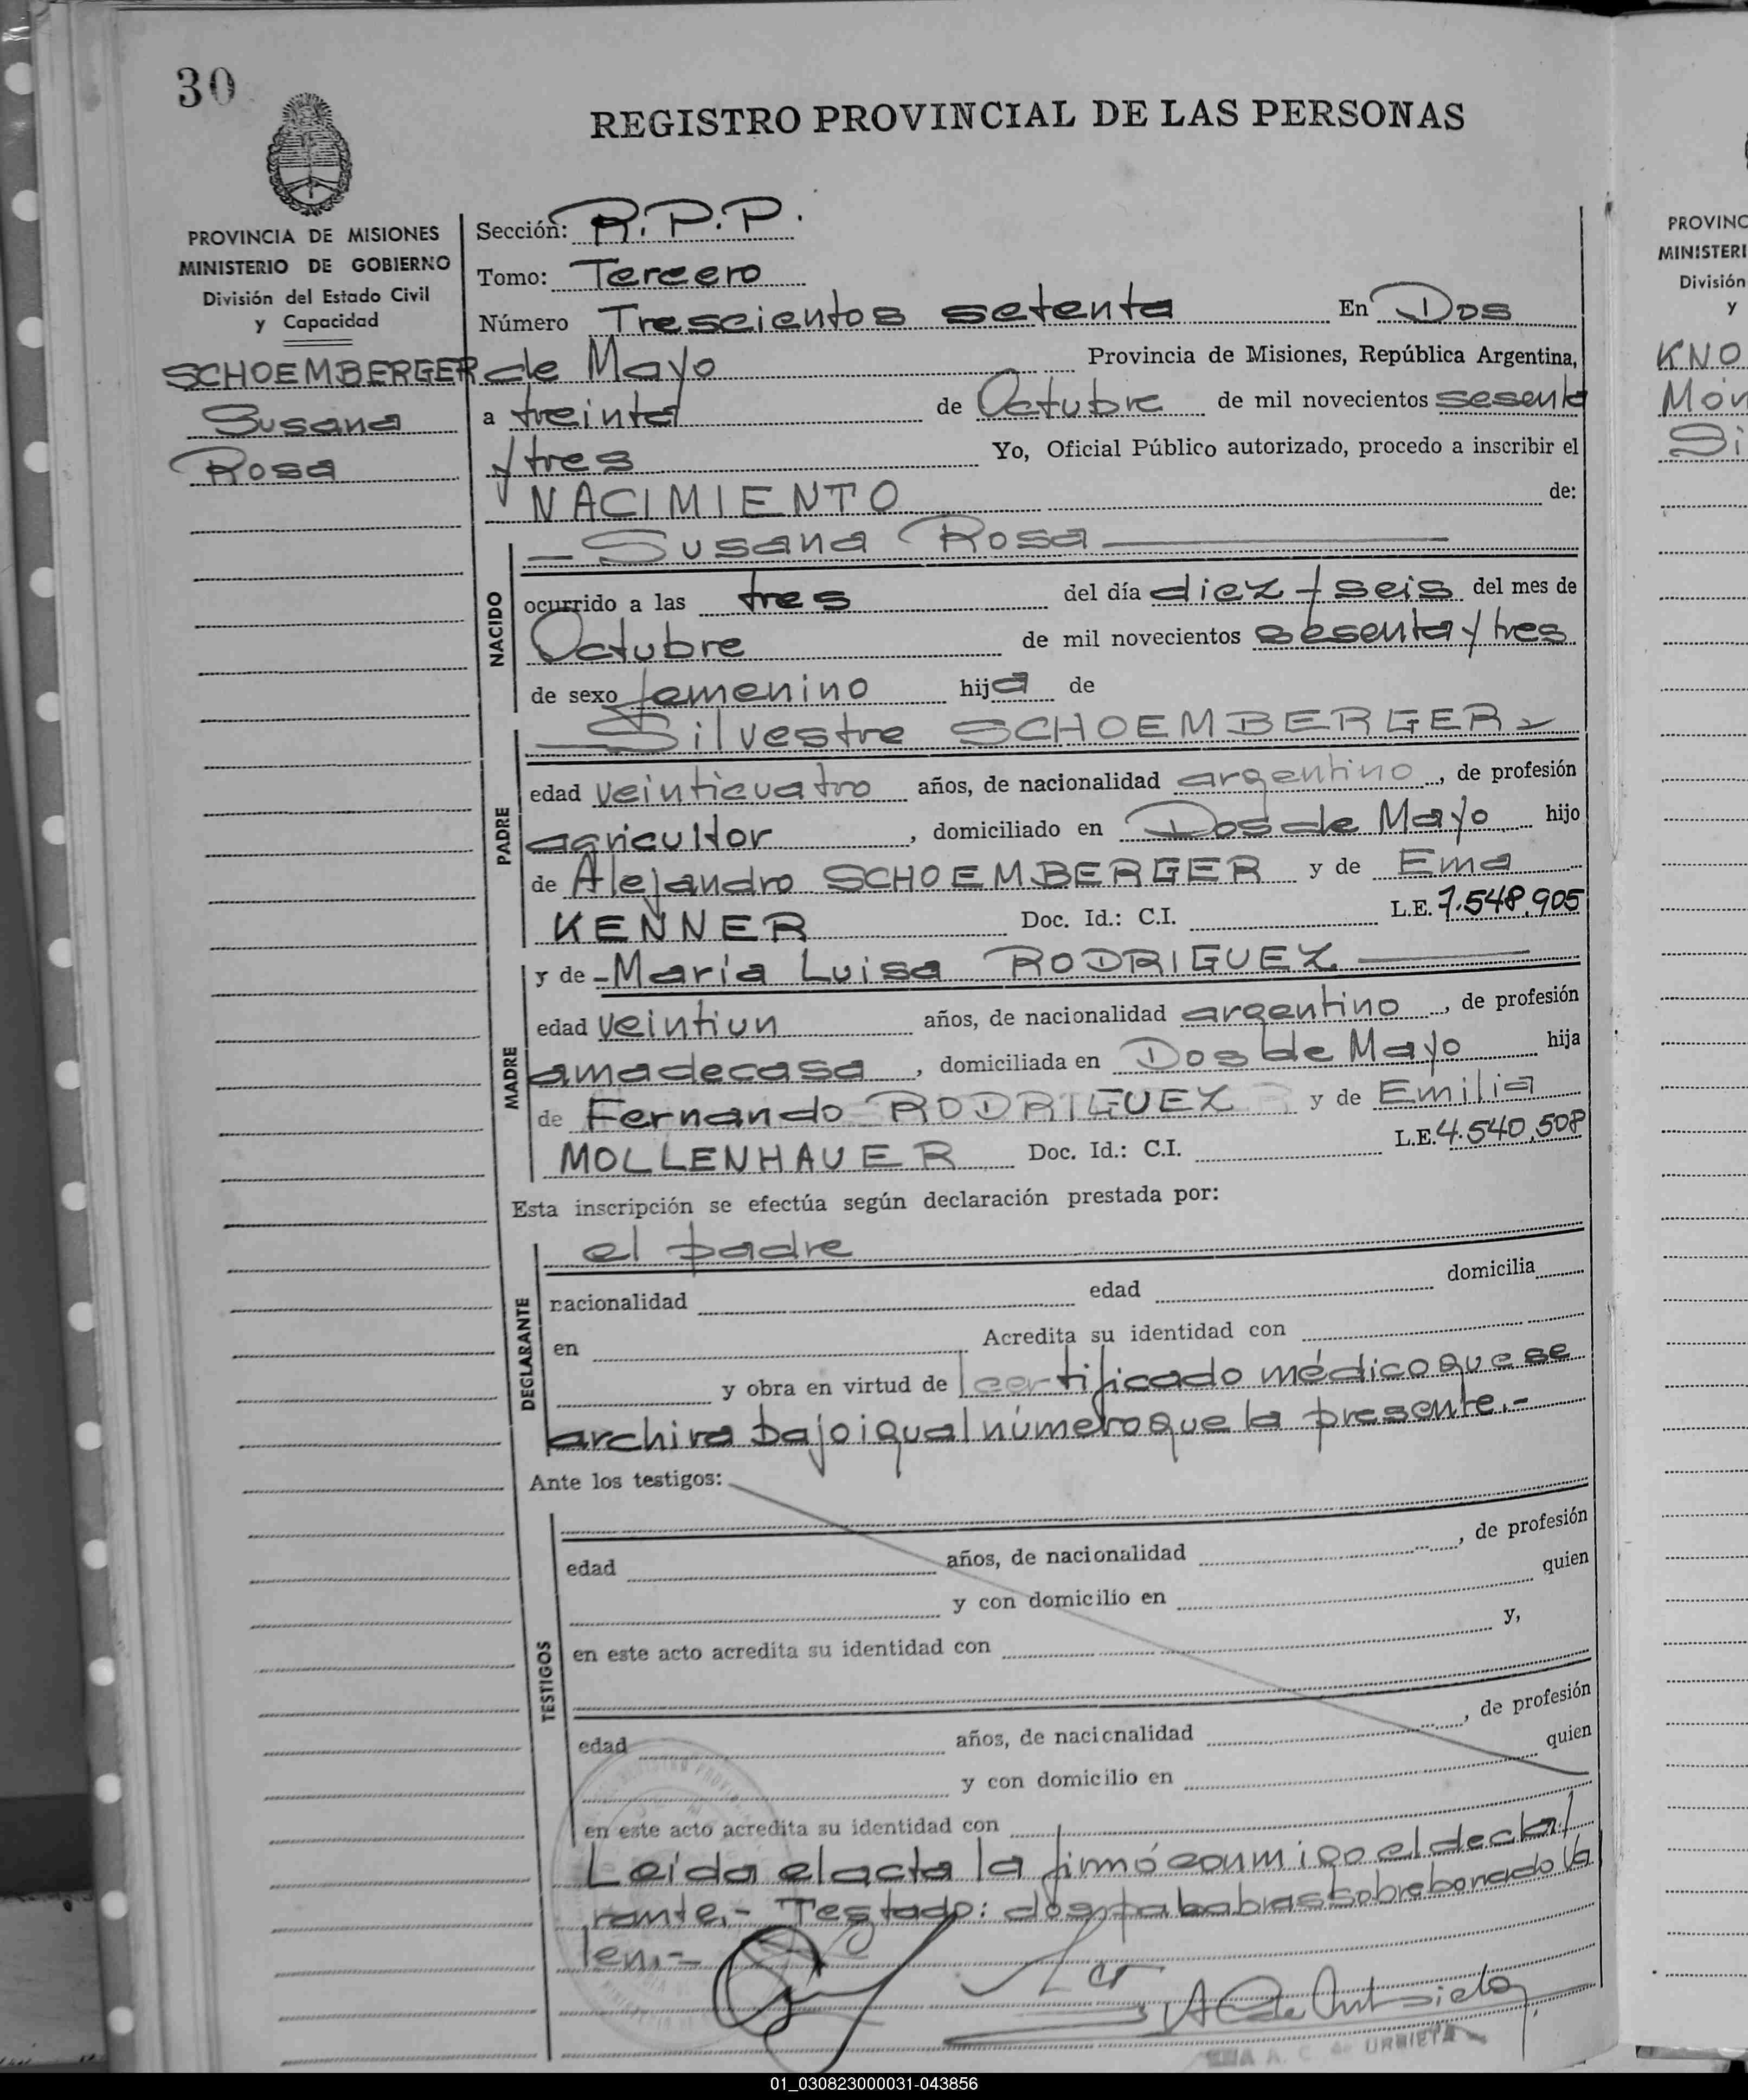 30
REGISTRO PROVINCIAL DE LAS PERSONAS
PROVINCIA DE MISIONES
MINISTERIO DE GOBIERNO
División del Estado Civil
y Capacidad
SCHOEMBERGER
Susana
Rosa
Sección: R.P.P.
Tomo: Tercero
Número Trescientos setenta En Dos
de Mayo Provincia de Misiones, República Argentina,
a treinta de Octubre de mil novecientos sesenta
y tres Yo, Oficial Público autorizado, procedo a inscribir el
NACIMIENTO de:
NACIDO
Susana Rosa
ocurrido a las tres del día diez y seis del mes de
Octubre de mil novecientos sesenta y tres
de sexo femenino hija de
PADRE
Silvestre SCHOEMBERGER
edad veinticuatro años, de nacionalidad argentino, de profesión
agricultor, domiciliado en Dos de Mayo hijo
de Alejandro SCHOEMBERGER y de Ema
KENNER Doc. Id.: C.I. L.E. 7.548.905
MADRE
y de María Luisa RODRIGUEZ
edad veintiun años, de nacionalidad argentino, de profesión
ama de casa, domiciliada en Dos de Mayo hija
de Fernando RODRIGUEZ y de Emilia
MOLLENHAUER Doc. Id.: C.I. L.E. 4.540.508
Esta inscripción se efectúa según declaración prestada por:
DECLARANTE
el padre
nacionalidad edad domicilia
en Acredita su identidad con
y obra en virtud de certificado médico que se
archiva bajo igual número que la presente.-
Ante los testigos:
TESTIGOS
edad años, de nacionalidad, de profesión
y con domicilio en quien
en este acto acredita su identidad con y,
edad años, de nacionalidad, de profesión
y con domicilio en quien
en este acto acredita su identidad con
Leida el acta la firmó conmigo el decla/
rante.- Testado: dos pababras sobreborrado Va
len.-
A. C. de URRIETA
PROVINC
MINISTERI
División
y
KNO
Món
Si
01_030823000031-043856